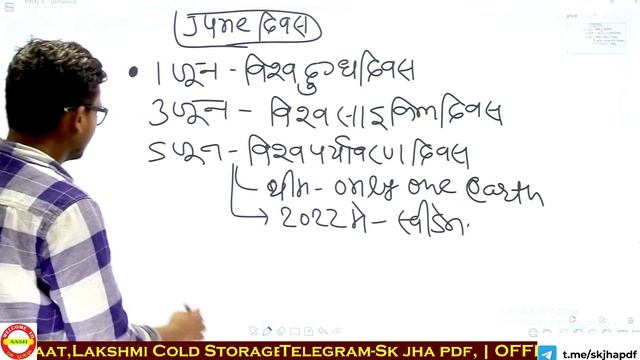 June दिवस
1 जून - विश्व दुग्ध दिवस
3 जून - विश्व साइकिल दिवस
5 जून - विश्व पर्यावरण दिवस
थीम - only one earth
2022 मे - स्वीडन
AAT,LAKSHMI COLD STORAGE TELEGRAM-SK JHA PDF, | OFFI
t.me/skjhapdf